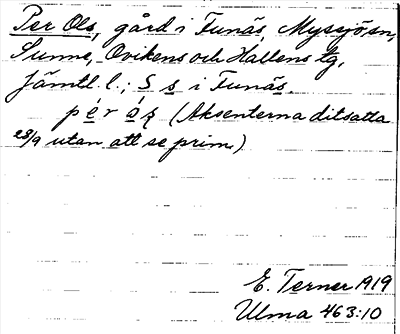 Per Ols, gård i Funäs, Myssjö sn,
Sunne, Ovikens och Hallens tg,
Jämtl. l.; S s i Funäs.
pér óʂ (Aksenterna ditsatta
23/9 utan att se prim.)
E. Terner 1919
Ulma 463:10